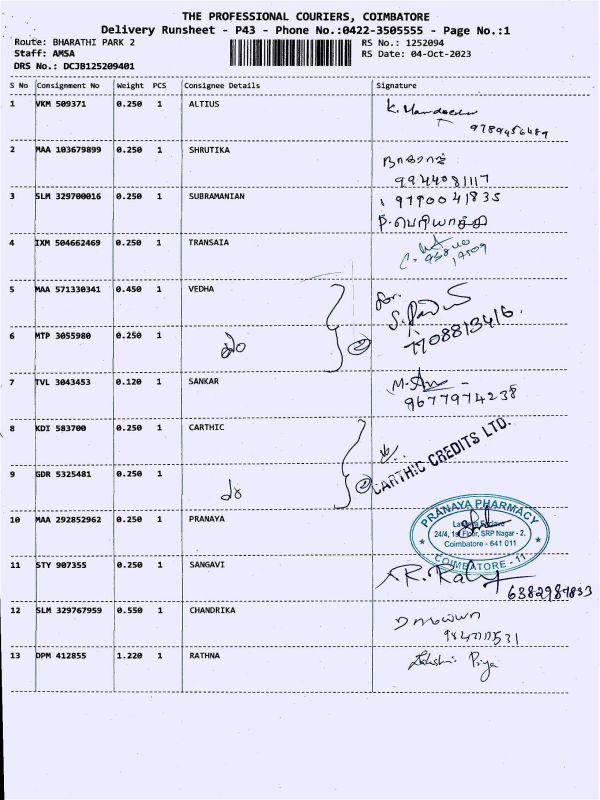 THE PROFESSIONAL COURIERS, COIMBATORE
Delivery Runsheet - P43 - Phone No.:0422-3505555 - Page No.:1
Route: BHARATHI PARK 2 RS No.: 1252094
Staff: AMSA RS Date: 04-Oct-2023
DRS No.: DCJB125209401
S No Consignment No Weight PCS Consignee Details Signature
1 VKM 509371 0.250 1 ALTIUS
9789456489
2 MAA 103679899 0.250 1 SHRUTIKA
நாகராஜ்
9944081117
3 SLM 329700016 0.250 1 SUBRAMANIAN 9790041835
P. பெரியாத்தி
4 IXM 504662469 0.250 1 TRANSAIA
5 MAA 571330341 0.450 1 VEDHA for.
6 MTP 3055980 0.250 1 do 2 7708813416.
7 TVL 3043453 0.120 1 SANKAR
9677974238
8 KDI 583700 0.250 1 CARTHIC
CARTHIC CREDITS LTD.
9 GDR 5325481 0.250 1 do 2
10 MAA 292852962 0.250 1 PRANAYA PRANAYA PHARMACY
24/4, 1st Floor, SRP Nagar - 2,
Coimbatore - 641 011
COIMBATORE - 11
11 STY 907355 0.250 1 SANGAVI
6382987833
12 SLM 329767959 0.550 1 CHANDRIKA
13 DPM 412855 1.220 1 RATHNA Lakshmi Priya